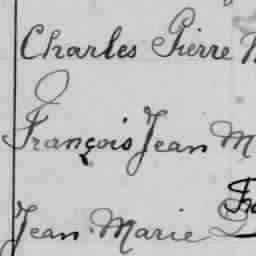 Charles Pierre
François Jean M
Jean Marie